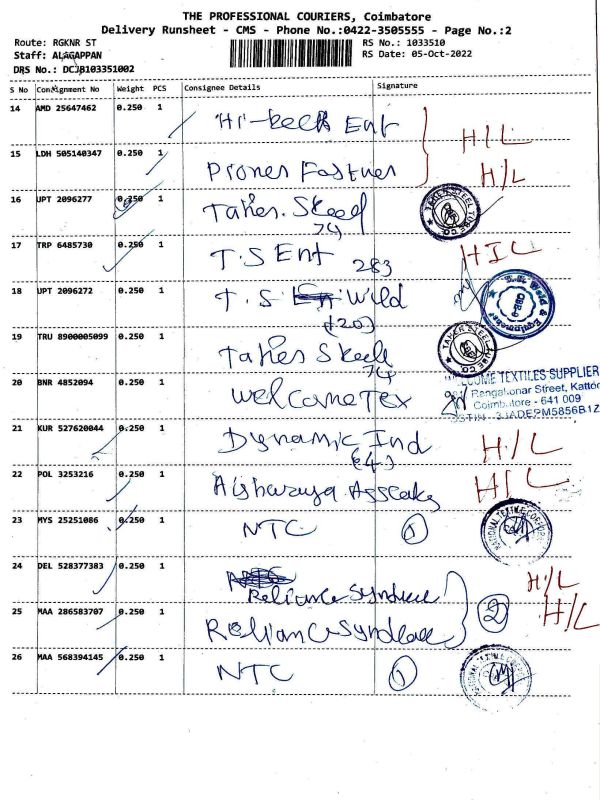 THE PROFESSIONAL COURIERS, Coimbatore
Delivery Runsheet - CMS - Phone No.:0422-3505555 - Page No.:2
Route: RGKNR ST RS No.: 1033510
Staff: ALAGAPPAN RS Date: 05-Oct-2022
DRS No.: DCJB103351002
S No Consignment No Weight PCS Consignee Details Signature
14 AMD 25647462 0.250 1 Hi-Ent
H/L
15 LDH 505140347 0.250 1
H/L
16 UPT 2096277 0.250 1 Taher Steel
74
TAHER STEEL TUBE CO
17 TRP 6485730 0.250 1 T.S Ent 283 H/L
18 UPT 2096272 0.250 1 T.S Wild
(20)
19 TRU 8900005099 0.250 1 Taher Steel
74
TAHER STEEL TUBE CO
20 BNR 4852094 0.250 1 Welcome Tex
WELCOME TEXTILES SUPPLIER
Rangai Konar Street, Kattoor
Coimbatore - 641 009
21 KUR 527620044 0.250 1 Dynamic Ind H/L
(64)
22 POL 3253216 0.250 1 H/L
23 MYS 25251086 0.250 1 NTC 1
NATIONAL TEXTILE CORPORATION
24 DEL 528377383 0.250 1 Reliance H/L
25 MAA 286583707 0.250 1 Reliance 2 H/L
26 MAA 568394145 0.250 1 NTC 1